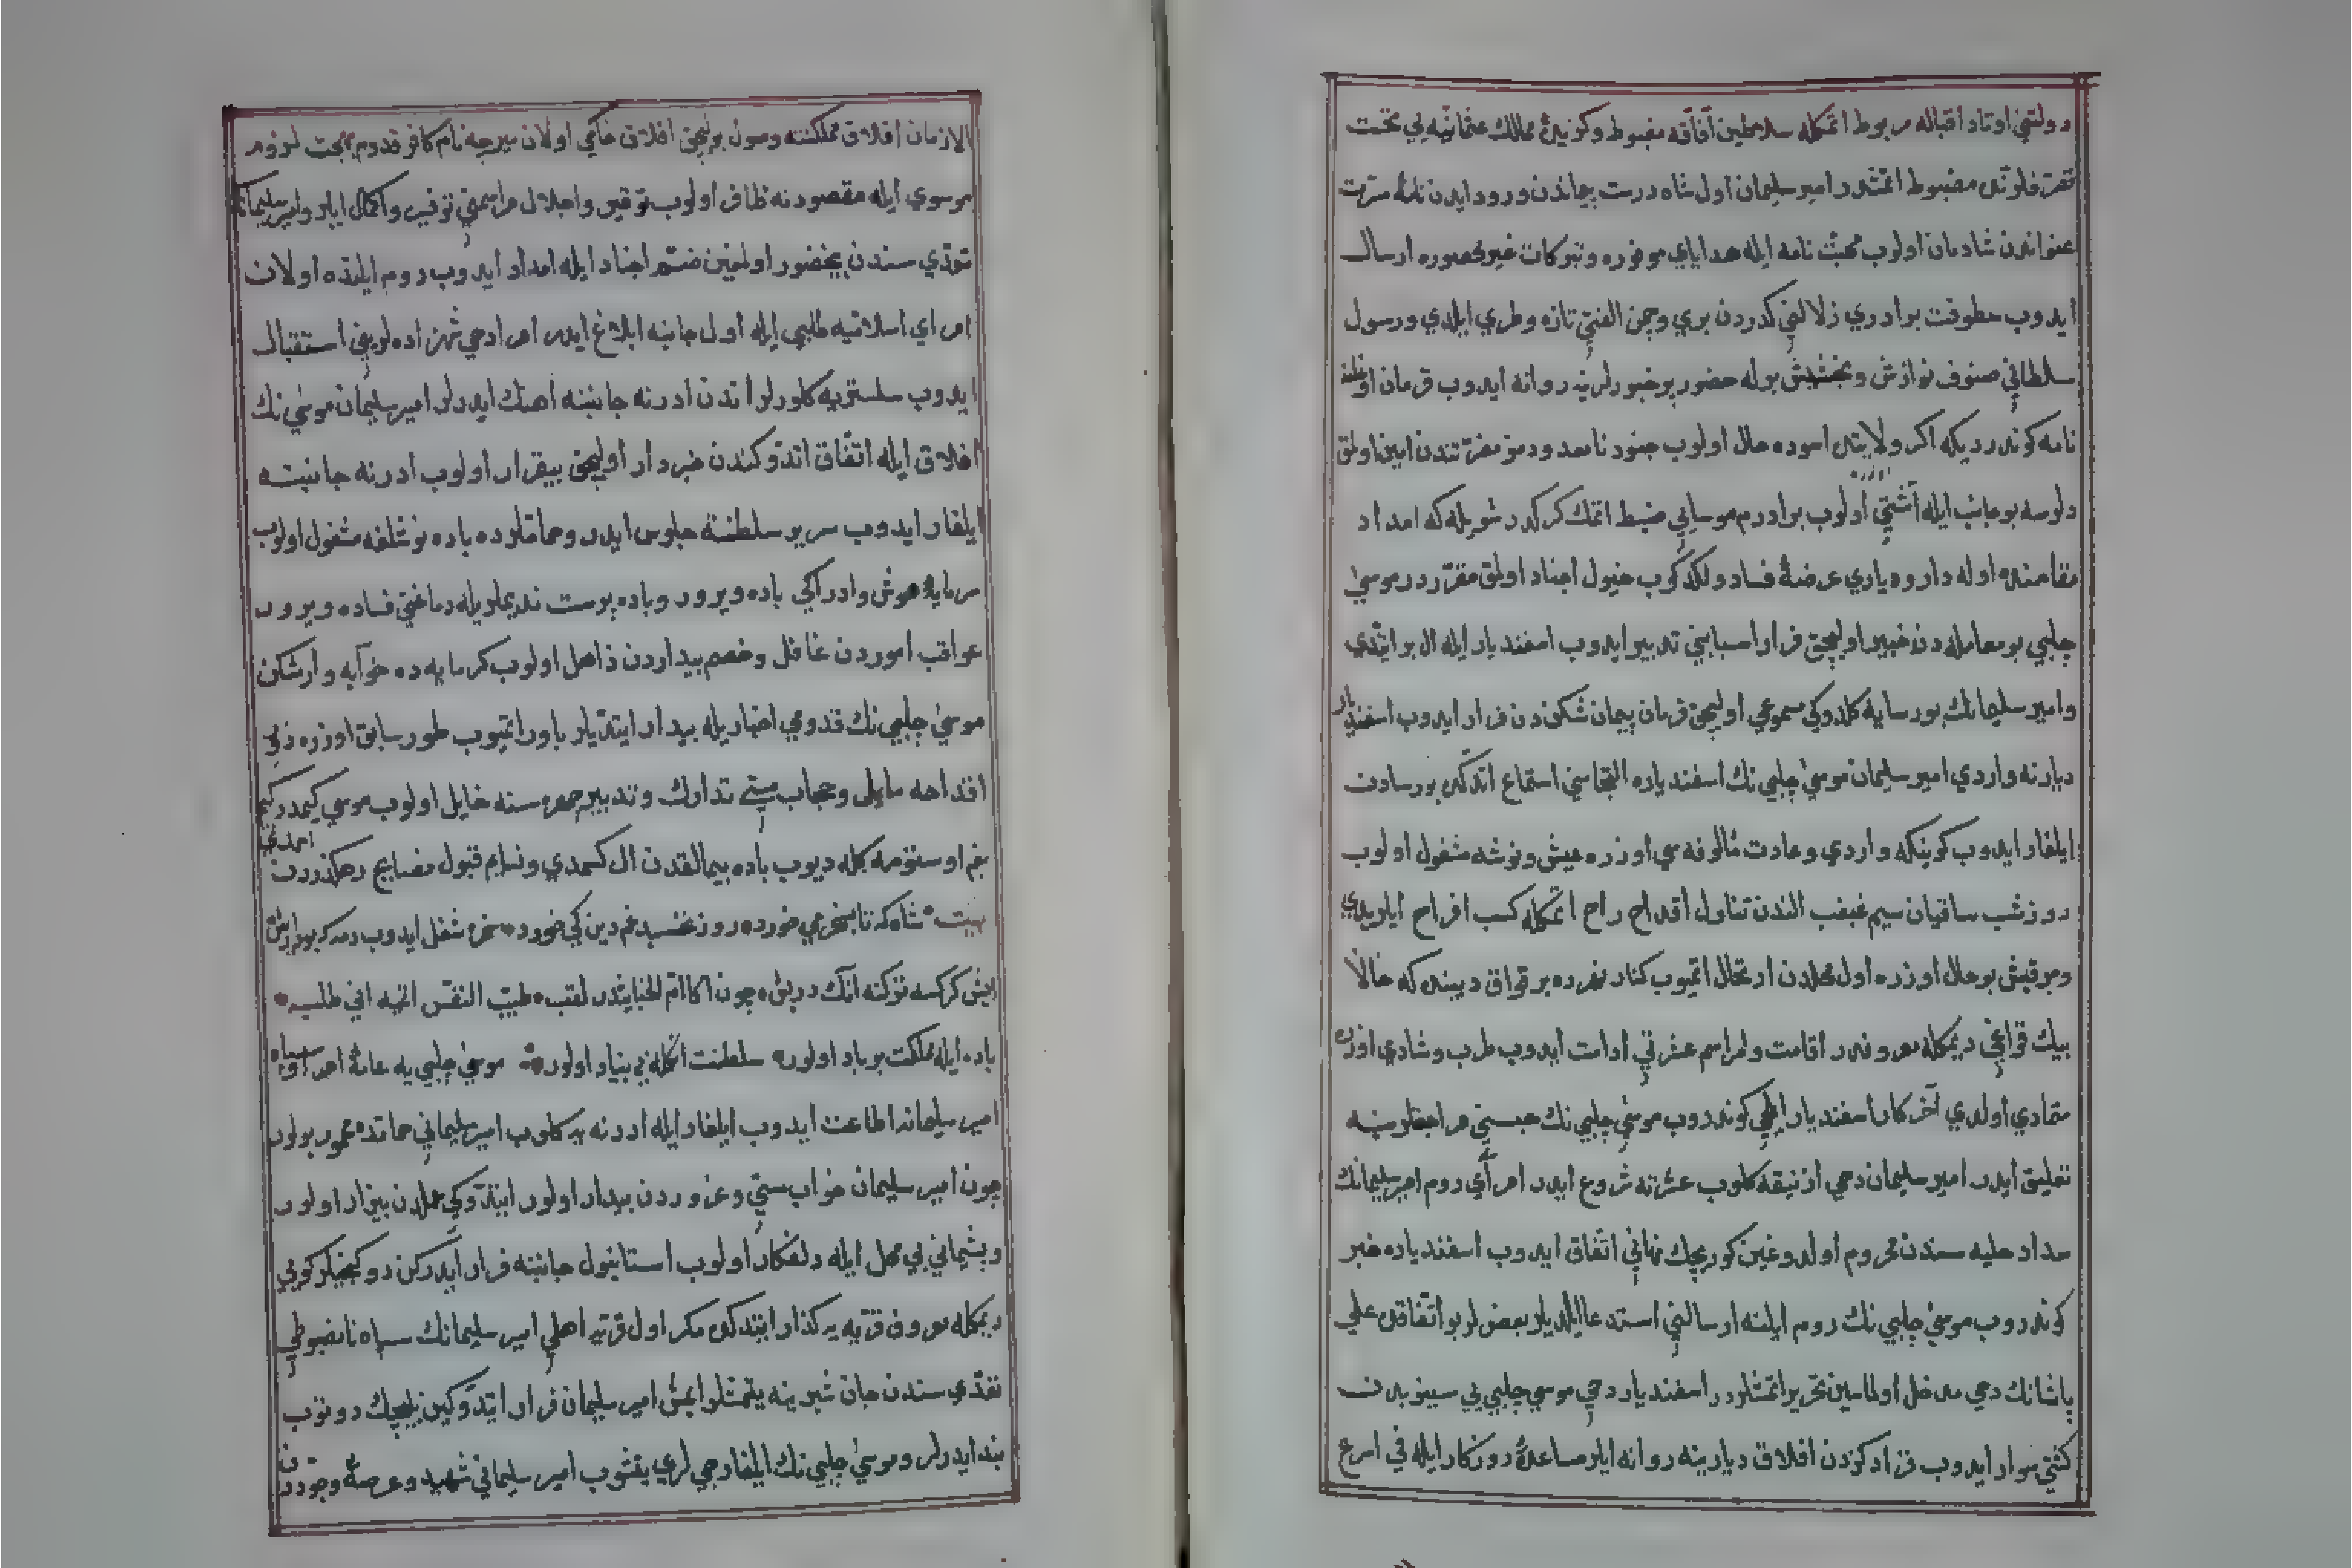 دولتني اوتاد اقباله مربوط اتمكله سلاطين آفاقه مغبوط وكوزيدهٔ ممالك عثمانيه يي تحت
تصرفلرنده مضبوط اتمشدر امير سليمان اول شاه درست پيماندن ورود ايدن نامهٔ مسرت
عنواندن شادمان اولوب محبت نامه ايله هداياي موفوره وتبركات غير محصوره ارسال
ايدوب عطوفت برادري زلالني كدردن بري وچمن الفتي تازه وطري ايلدي ورسول
سلطاني صنوف نوازش وبخشيش برله حضور پر حبورلرينه روانه ايدوب قرمان اوغلنه
نامه كوندرديكه اكر ولايتنده اسوده حال اولوب جنود نامعدودمز مضرتندن امين اولمق
دلرسه بو جانب ايله آشتي اوزره اولوب برادرم موسايي ضبط اتمك كركدر شويله كه امداد
مقامنده اوله دار ودياري عرضهٔ فساد ولكدكوب خيول اجناد اولمق مقرردر موسى
چلبي بو معامله دن خبير اوليجق فرار اسبابني تدبير ايدوب اسفنديار ايله ال بر ايتدي
وامير سليمانك بورسايه كلدوكي مسموعي اوليجق قرمان پيمان شكن دن فرار ايدوب اسفنديار
ديارنه واردي امير سليمان موسى چلبي نك اسفندياره التجاسني استماع اتدكده بورسادن
ايلغار ايدوب كوينكه واردي وعادت مألوفه سي اوزره عيش ونوشه مشغول اولوب
روز شب ساقيان سيم غبغب الندن تناول اقداح راح اتمكله كسب افراح ايلريدي
وبر قيش بو حال اوزره اول محلدن ارتحال اتميوب كنار نهرده بر قواق ديبنده كه حالا
بيك قواغي ديمكله معروفدر اقامت ومراسم عشرتي ادامت ايدوب طرب وشادي اوزره
متمادي اولدي آخر كار اسفنديار ايلچي كوندروب موسى چلبي نك حبسني مراجعتلرينه
تعليق ايدر امير سليمان دخي ازنيقه كلوب عشرته شروع ايدر امراي روم امير سليمانك
سداد حليه سندن محروم اولدوغين كوريجك نهاني اتفاق ايدوب اسفندياره خبر
كوندروب موسى چلبي نك روم ايلنه ارسالني استدعا ايلديلر بعضلر بو اتفاقده علي
پاشانك دخي مدخل اولماسين تحرير اتمشلردر اسفنديار دخي موسى چلبي يي سينوبدن
كشتي سوار ايدوب قرادكزدن افلاق ديارينه روانه ايلر مساعدهٔ روزكار ايله في اسرع
الازمان افلاق مملكتنه وصول بوليجق افلاق حاكمي اولان ميرجه نام كافر قدوم بهجت لزوم
موسوي ايله مقصودنه ظافر اولوب توقير واجلال مراسمني توفير واكمال ايلر وامير سليمانك
تعدي سندن بيحضور اولمغين ضم اجناد ايله امداد ايدوب روم ايلنده اولان
امراي اسلاميه طلبي ايله اول جانبه ابلاغ ايدر امرا دخي شهزاده لريني استقبال
ايدوب سلسترهيه كلورلر اندن ادرنه جانبنه آهنك ايدرلر امير سليمان موسى نك
افلاق ايله اتفاق اتدوكندن خبردار اوليجق بيقرار اولوب ادرنه جانبنه
ايلغار ايدوب سرير سلطنته جلوس ايدر وحماملرده باده نوشلغه مشغول اولوب
سرمايهٔ هوش وادراكي باده ويرور وباده پرست نديملريله دماغني فساده ويرور
عواقب اموردن غافل وخصم بيداردن ذاهل اولوب كرمابه ده خوابه وارشكن
موسى چلبي نك قدومي اخباريله بيدار ايتديلر باور اتميوب طور سابق اوزره
اقداحه مايل وحجاب مستي تدارك وتدبير چهره سنه حايل اولوب موسى كيمدر كيم
بنم اوستومه كله ديوب باده پيمالقدن ال كسمدي ونسايم قبول نصايح رهكذردن اسمدي
بيت شاه كه تا بسخر مي خورد روز نخسپد غم دين كي خورد
باده ايله مملكت برباد اولور سلطنت انكله بي بنياد اولور موسى چلبي يه عامهٔ امرا وسپاه
امير سليمانه اطاعت ايدوب ايلغار ايله ادرنه يه كلوب امير سليماني حمامده مخمور بولور
چون امير سليمان خواب مستي وغروردن بيدار اولور ايتدوكي عملدن بيزار اولور
وپشيماني بي محل ايله دلفكار اولوب استانبول جانبنه فرار ايدركن دوكنجيلر كويي
ديمكله معروف قريه يه كذار ايتدكده مكر اول قريه اهلي امير سليمانك سپاه نامضبوطي
تعدي سندن جان شيرينه يتمشلر ايمش امير سليمان فرار ايتدوكين بليجك دوتوب
بند ايدرلر وموسى چلبي نك ايلغارجي لري يتشوب امير سليماني شهيد وعرصهٔ وجوددن